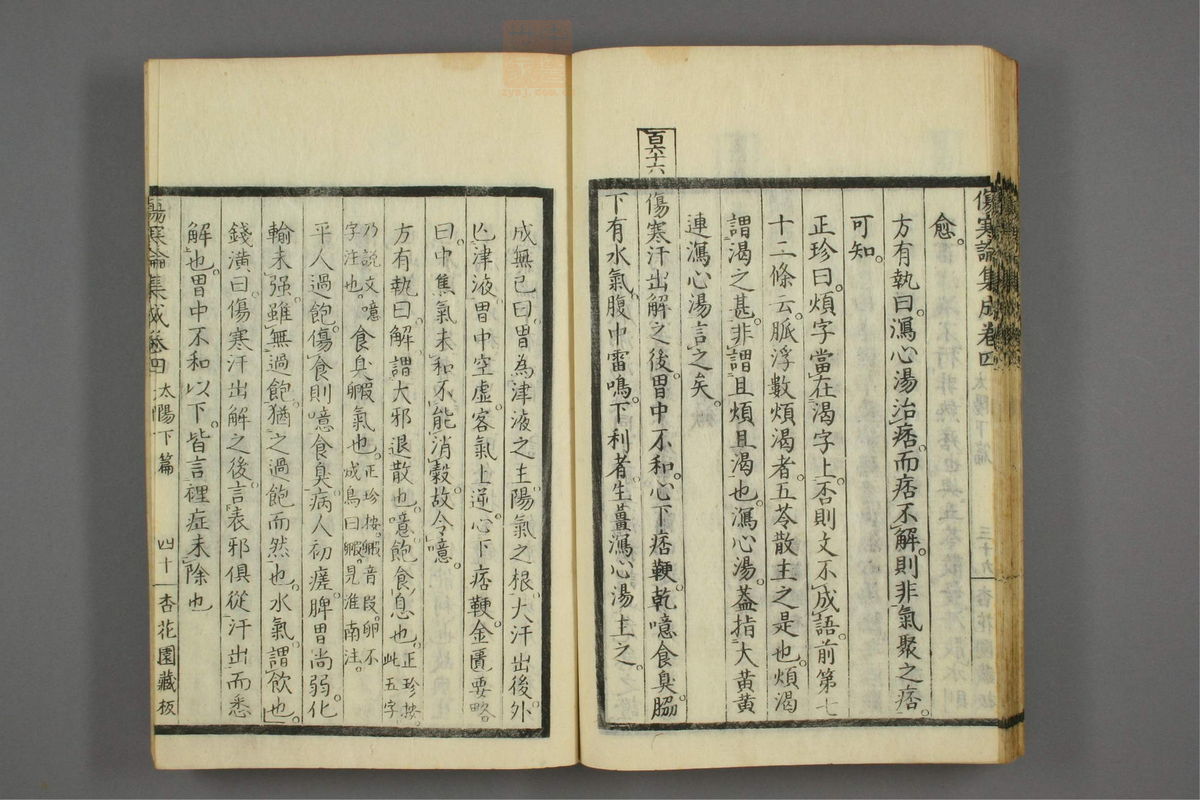 傷寒論集成卷四
愈。
方有執曰。瀉心湯治痞。而痞不解。則非氣聚之痞。
可知。
正珍曰。煩字當在渴字上。否則文不成語。前第七
十二條云。脈浮數煩渴者。五苓散主之是也。煩渴
謂渴之甚。非謂且煩且渴也。瀉心湯。蓋指大黃黃
連瀉心湯言之矣。
百六十六
傷寒汗出解之後。胃中不和。心下痞鞕。乾噫食臭。脇
下有水氣。腹中雷鳴。下利者。生薑瀉心湯主之。
成無已曰。胃為津液之主。陽氣之根。大汗出後。外
亡津液。胃中空虛。客氣上逆。心下痞鞕。金匱要略
曰。中焦氣未和。不能消穀。故令噫。
方有執曰。解謂大邪退散也。噫飽食息也。正珍按。此五字
乃說文噫字注也。食臭䐇氣也。正珍按。䐇音段。卵不成鳥曰䐇。見淮南注。
平人過飽。傷食則噫食臭。病人初瘥。脾胃尚弱。化
輸未强。雖無過飽。猶之過飽而然也。水氣謂飲也。
錢潢曰。傷寒汗出解之後。言表邪俱從汗出而悉
解也。胃中不和以下。皆言裡症未除也
傷寒論集成卷四 太陽下篇 四十 杏花園藏板